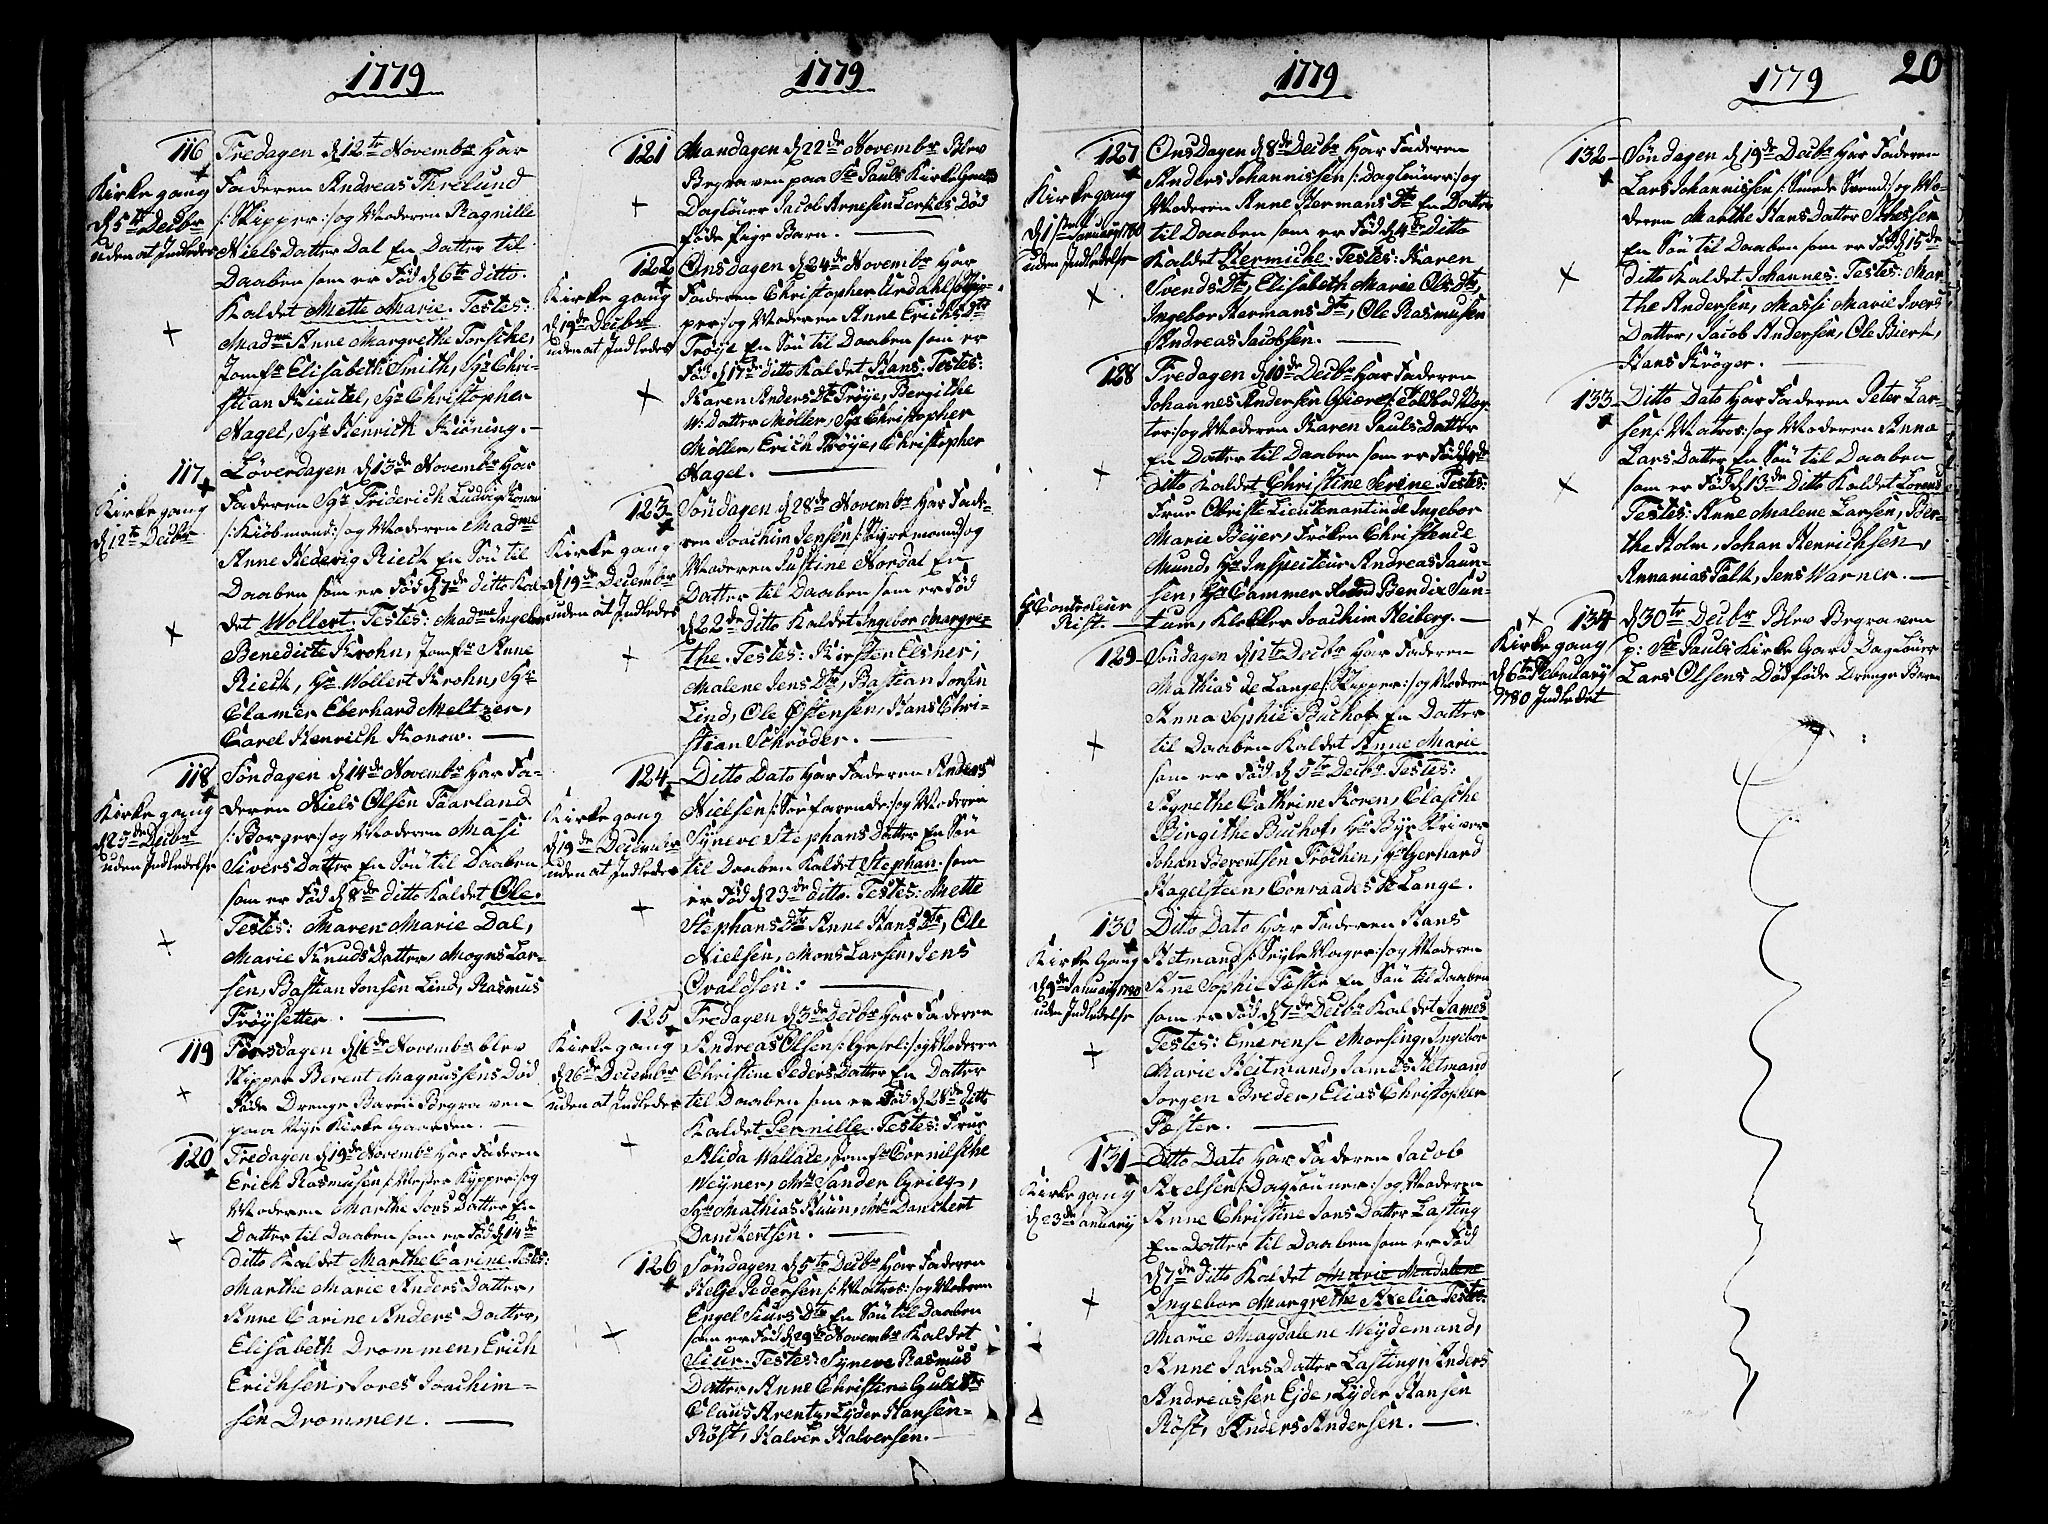 1779
116
Kirkegang
d 5te Decbr
uden at Indledes
Fredagen d 12te Novembr Har
Faderen Andreas Threlund
/: Skipper :/ og Moderen Ragnille
Niels Datter Dal En Datter til
Daaben som er Fød d 6te ditto
Kaldet Mette Marie. Testes:
Madme Anne Margrethe Forsche,
Jomfr Elisabeth Smith, Sgr Chri-
stian Kieutel, Sgr Christopher
Nagel, Sgr Henrich Kiöning.
117
Kirkegang
d 12te Decbr
Løverdagen d 13de Novembr Har
Faderen Sgr Friderich Ludvig Konow
/: Kiöbmand :/ og Moderen Madme
Anne Hedevig Riech En Søn til
Daaben som er Fød d 7de ditto Kal-
det Wollert. Testes: Madme Ingebor
Benedicte Krohn, Jomfr Anne
Riech, Hr Wollert Krohn, Sgr
Clamer Eberhard Meltzer,
Carel Henrich Konow.
118
Kirkegang
d 25de Decbr
uden Indledelse
Søndagen d 14de Novembr Har Fa-
deren Niels Olsen Faarland
/: Borger :/ og Moderen Masi
Sivers Datter En Søn til Daaben
som er Fød d 8de ditto Kaldet Ole.
Testes: Maren Marie Dal,
Marie Knuds Datter, Mogns Lar-
sen, Bastian Jonsen Lind, Rasmus
Frøysetter.
119
Torsdagen d 16de Novembr blev
Skipper Berent Magnussens Død
Føde Drenge Baren Begraven
paa Nye Kirke Gaarden.
120
Fredagen d 19de Novembr Har Faderen
Erich Rasmusen /: Mester Kypper :/ og
Moderen Marthe Jons Datter En
Datter til Daaben som er Fød d 14de
ditto Kaldet Marthe Carine. Testes:
Marthe Marie Anders Datter,
Anne Carine Anders Datter,
Elisabeth Drommen, Erich
Erichsen, Sores Joachim-
sen Drommen.
1779
121
Mandagen d 22de Novembr Blev
Begraven paa St Pauls Kirke Gaard
Dagløner Jacob Arnesen Lerkes Død
føde Pige Barn.
122
Kirkegang
d 19de Decbr
uden at Indledes
Onsdagen d 24de Novembr Har
Faderen Christopher Urdahl /: Skip-
per :/ og Moderen Anne Erichs Dtr
Trøye En Søn til Daaben som er
Fød d 17de ditto Kaldet Hans. Testes:
Karen Anders Dtr Trøye, Bergithe
W: Datter Møller, Sgr Christopher
Møller, Erich Trøye, Christopher
Nagel.
123
Kirkegang
d 19de December
uden at Indledes
Søndagen d 28de Novembr Har Fade-
ren Joachim Jensen /: Styremand :/ og
Moderen Justine Nordal En
Datter til Daaben som er Fød
d 22de ditto Kaldet Ingebor Margre-
the. Testes: Kirsten Elsner,
Malene Jens Dtr, Bastian Jonsen
Lind, Ole Østensen, Hans Chri-
stian Schrøder.
124
Kirkegang
d 19de December
uden at Indledes
Ditto Dato Har Faderen Anders
Nielsen /: Søefarende :/ og Moderen
Syneve Stephans Datter En Søn
til Daaben Kaldet Stephan. som
er Fød d 23de ditto. Testes: Mette
Stephans Dtr, Anne Hans Dtr, Ole
Nielsen, Mons Larsen, Jens
Ovaldsen.
125
Kirkegang
d 26de December
uden at Indledes
Fredagen d 3de Decbr Har Faderen
Andreas Olsen og Moderen
Christine Peders Datter En Datter
til Daaben som er Fød d 28de ditto
Kaldet Pernille. Testes: Frue
Alida Wallace, Jomfr Cornilsche
Weyner, Mr Sander Grieg,
Sgr Mathias Stuun, Mr Danckert
Danckertsen.
126
Søndagen d 5te Decbr Har Faderen
Helje Pedersen /: Matros :/ og Moderen
Engel Siurs Dtr En Søn til Daaben
som er Fød d 29de Novembr Kaldet
Siur. Testes: Syneve Rasmus
Datter, Anne Christine Dtr
Claus Arentz, Lyder Hansen
Röst, Halver Halversen.
1779
127
Kirkegang
d 1ste January 1780
uden Indledelse
Onsdagen d 8de Decbr Har Faderen
Anders Johannissen /: Dagløner :/ og
Moderen Anne Hermans Dtr En Datter
til Daaben som er Fød d 4de ditto
Kaldet Hermiche. Testes: Karen
Svends Dtr, Elisabeth Marie Ols Dtr,
Ingebor Hermans Dtr, Ole Rasmusen
Andreas Jacobsen.
128
Hr Controleur
Rist.
Fredagen d 10de Decbr Har Faderen
Johannes Andersen Giære /: Toldbod Vag-
ter :/ og Moderen Karen Pauls Datter
En Datter til Daaben som er Fød
Ditto Kaldet Christine Serine. Testes:
Frue Obriste Lieutenantinde Ingebor
Marie Beyer, Frøken Christence
Mund, Hr Inspecteur Andreas Jaun-
sen, Hr Cammer Raad Bendix Sun-
tum, Klokker Joachim Heiberg.
129
Søndagen d 12te Decbr Har Faderen
Mathias de Lange /: Skipper :/ og Moderen
Anna Sophie Buchof En Datter
til Daaben Kaldet Anne Marie
som er Fød d 5te Decbr. Testes:
Agnethe Cathrine Koren, Clasche
Birgithe Buchof, Hr Bye Skriver
Johan Berentsen Frochen, Hr Gerhard
Hagelsteen, Conraades de Lange.
130
Kirke Gang
d 9de January 1780
uden Indledelse
Ditto Dato Har Faderen Hans
Hetmand /: Seyle Mager :/ og Moderen
Ane Sophi Fæster En Søn til Daaben
som er Fød d 7de Decbr Kaldet James
Testes: Emerense Morsing, Ingebor
Marie Heitmand, James Hetmand
Jorgen Breder, Elias Christopher
Fæster.
131
Kirkegang
d 23de January
Ditto Dato Har Faderen Jacob
Axelsen /: Dagløuner :/ og Moderen
Anne Christine Jans Datter Lasting
En Datter til Daaben som er Fød
d 7de ditto Kaldet Marie Madalene
Ingebor Margrethe Axelia Testes:
Marie Magdalene Weydemand,
Anne Jans Datter Lasting, Anders
Andreassen Ejde, Lyder Hansen
Röst, Anders Andersen.
1779
20
132
Søndagen d 19de Decbr Har Faderen
Lars Johannissen /: Smede Svend :/ og Mo-
deren Marthe Hans Datter
En Søn til Daaben som er Fød d 15de
ditto Kaldet Johannes. Testes: Mar-
the Andersen, Massi Marie Ivers
Datter, Jacob Andersen, Ole Bierk,
Hans Krøger.
133
Ditto Dato Har Faderen Peter Lar-
sen /: Matros :/ og Moderen Anna
Lars Datter En Søn til Daaben
som er Fød d 13de Ditto Kaldet Lorends
Testes: Anne Malene Larsen, Ber-
the Holm, Johan Henrichsen,
Annanias Falk, Jens Warner.
134
Kirkegang
d 6te February
1780 Indledet
d 30te Decbr Blev Begraven
p: St Pauls Kirke Gard Dagløner
Lars Olsens Dødføde Drenge Barn